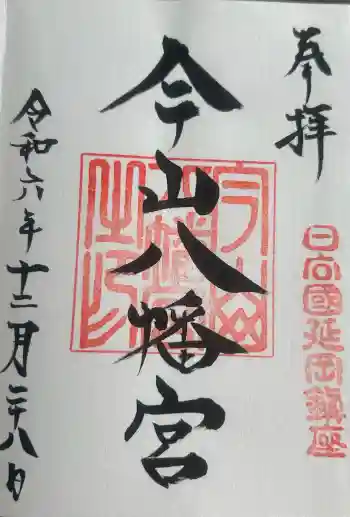 奉拝
日向國延岡鎮座
今山八幡宮
令和六年十二月二十八日